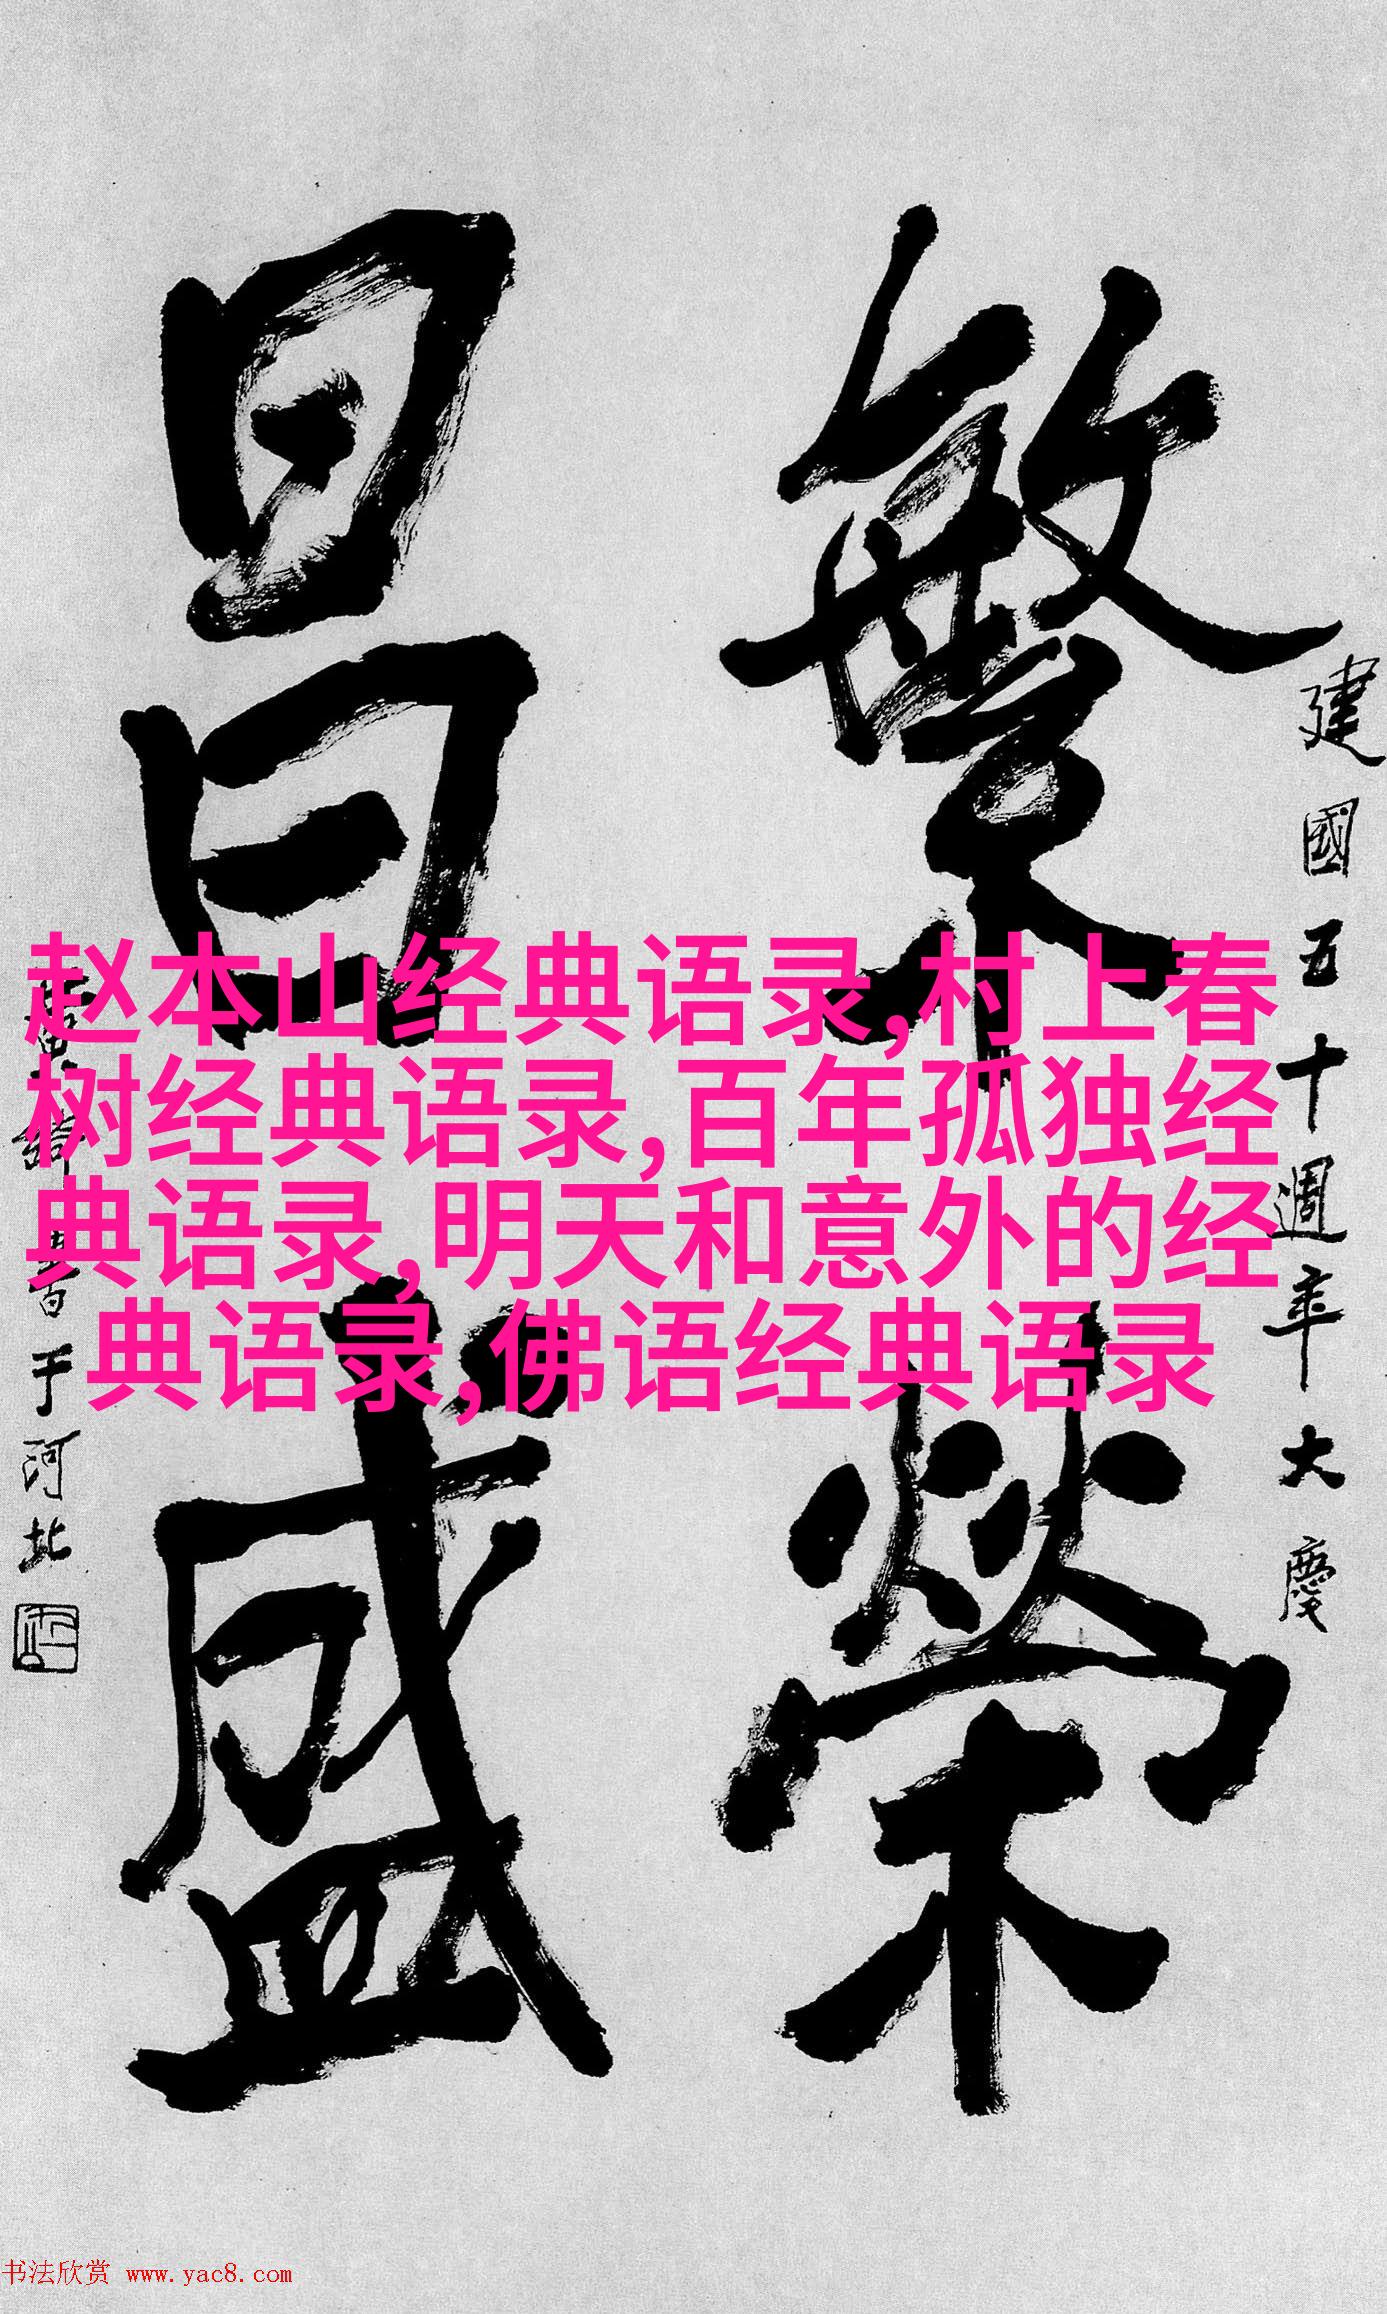 繁榮
昌盛
建國五十週年大慶
黄綺書于河北
赵本山经典语录,村上春
树经典语录,百年孤独经
典语录,明天和意外的经
典语录,佛语经典语录
书法欣赏 www.yac8.com